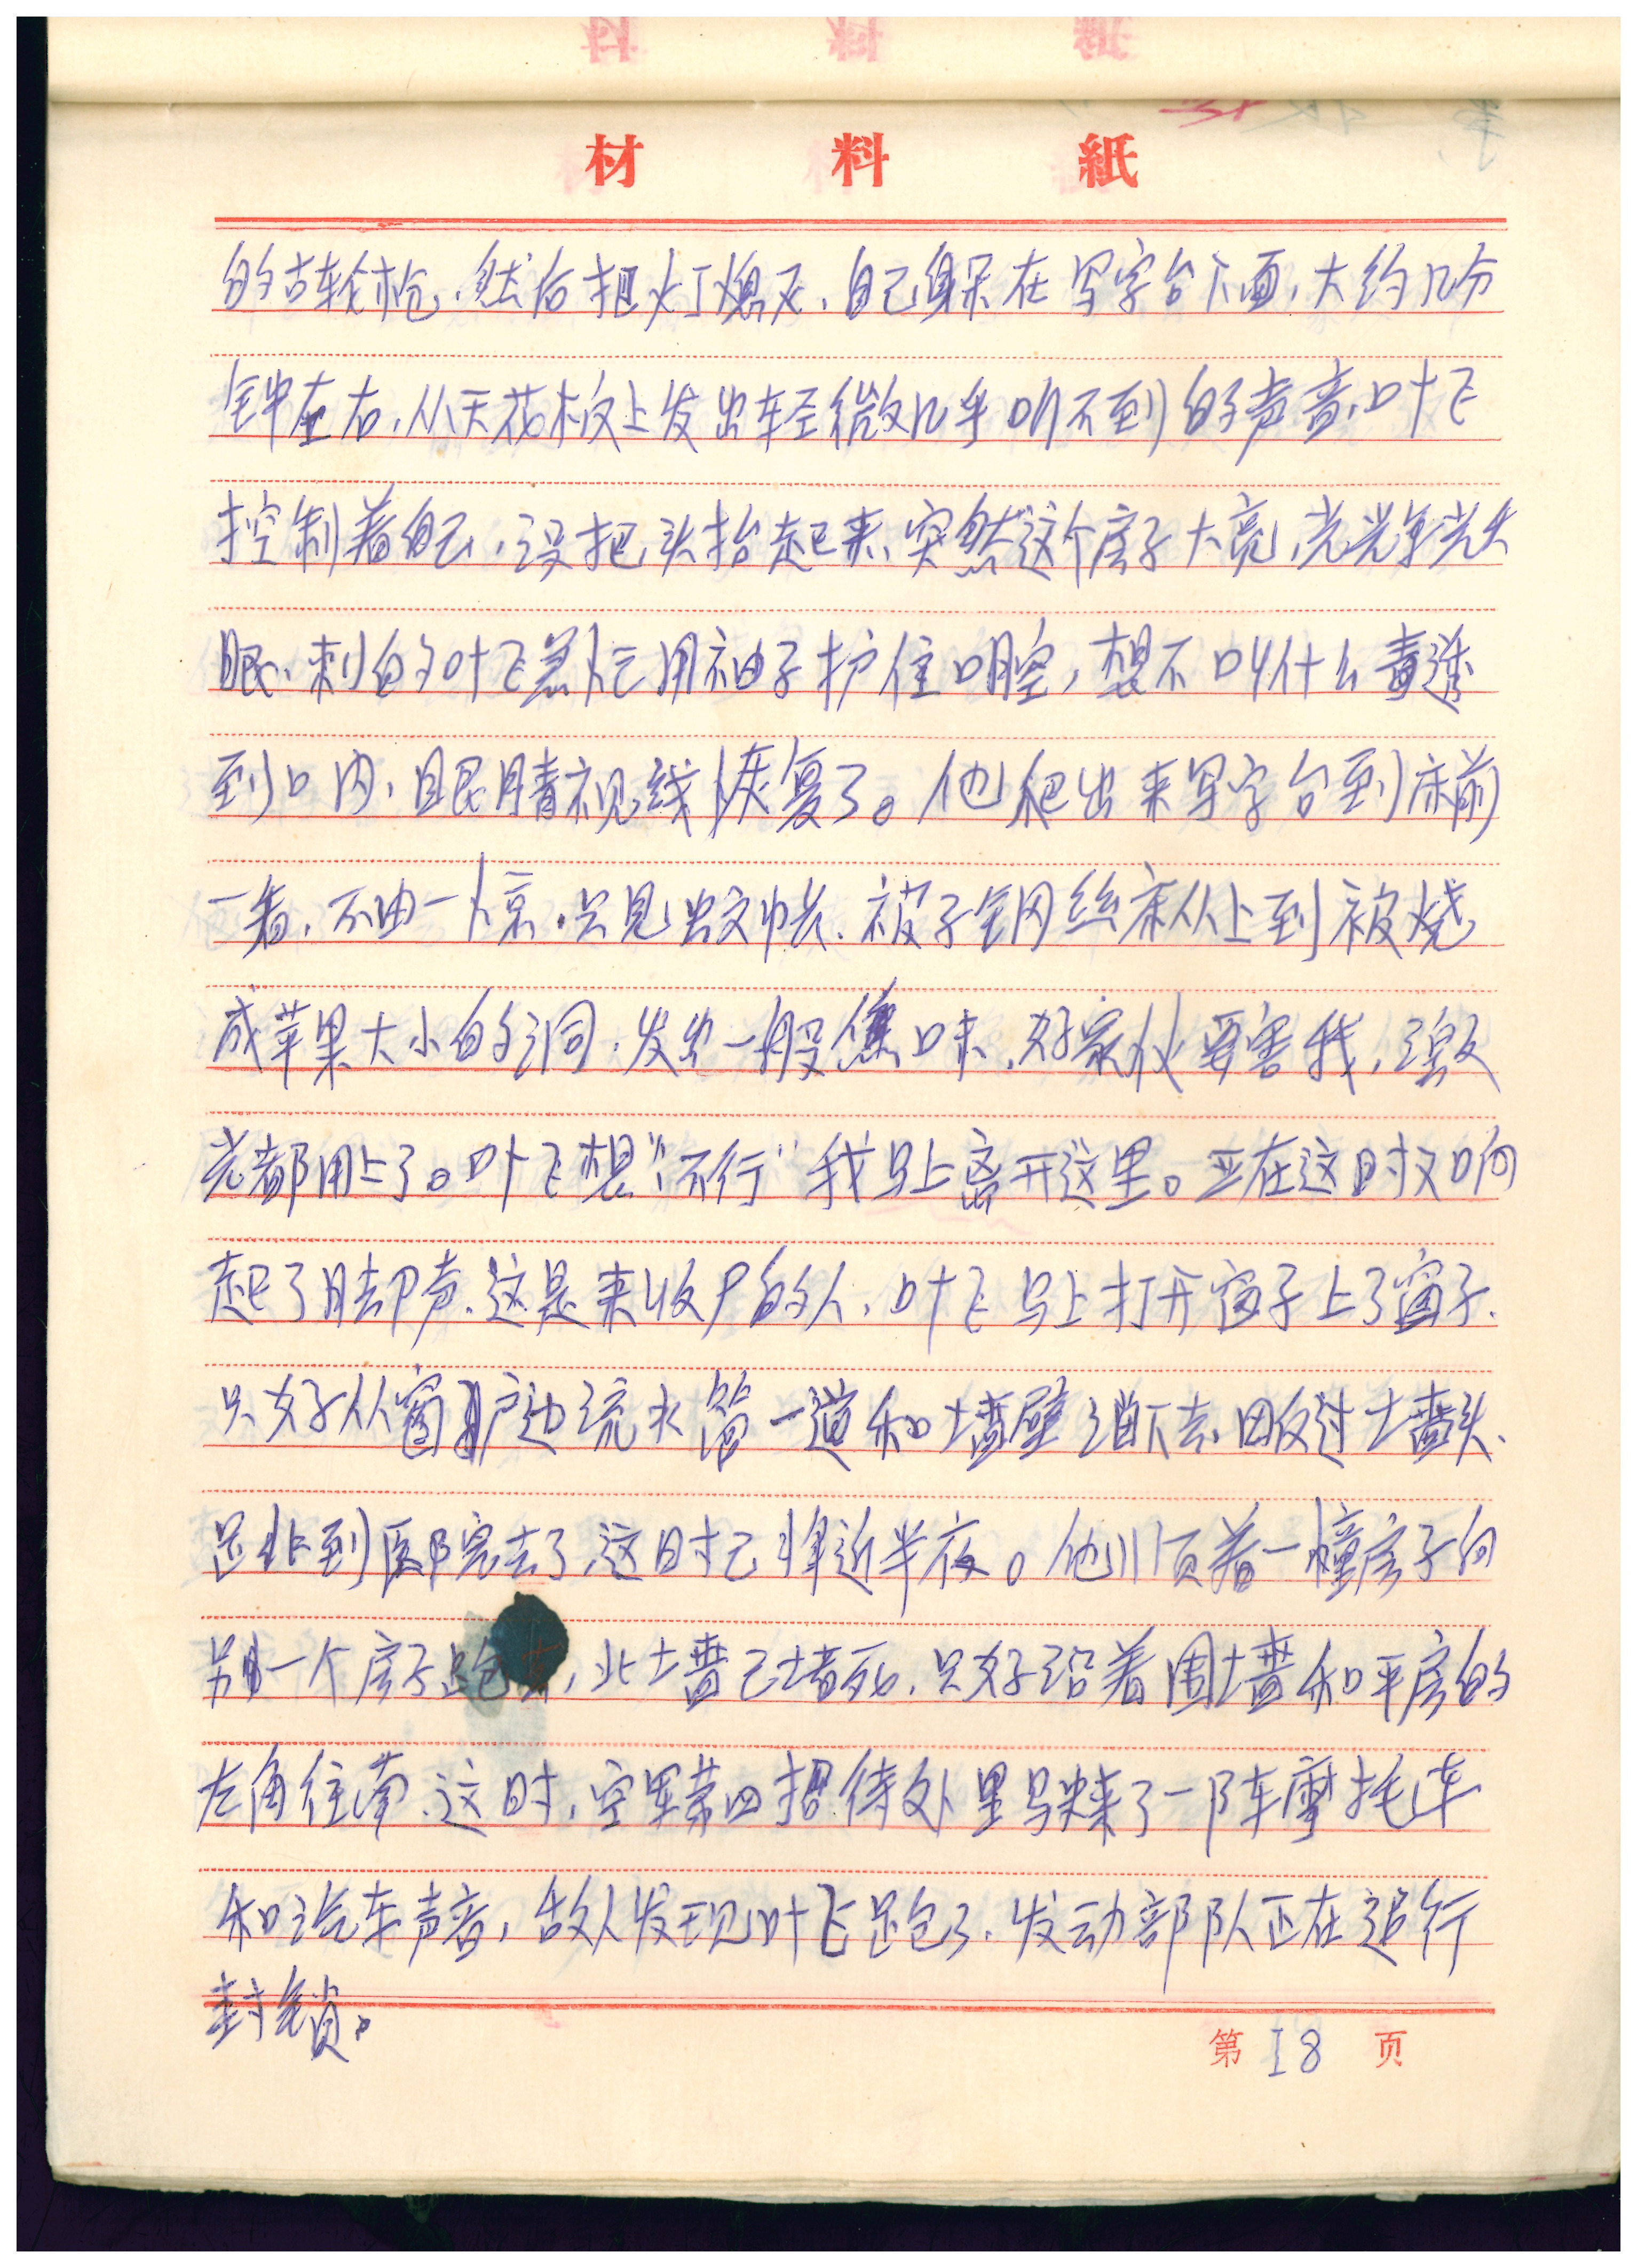 材料紙
的古轮枪，然后把灯熄灭，自己躲在写字台下面，大约几分
钟左右，从天花板上发出轻微几乎听不到的声音，叶飞
控制着自己，没把头抬起来，突然这个房子大亮，光光
眼，刺的叶飞急忙用袖子护住口腔，想不叫什么毒透
到口内，眼睛视线恢复了。他爬出来写字台到床前
一看，不由一惊，只见蚊帐，被子钢丝床从上到被烧
成苹果大小的洞，发出一般焦味，好家伙要害我，激
光都用上了。叶飞想“不行”我马上离开这里。正在这时又响
起了脚声，这是来收尸的人，叶飞马上打开窗子上了窗子，
只好从窗户边流水管一道和墙壁消下去，翻过墙头，
是非到医院去了，这时已将近半夜。他顺着一幢房子向
另一个房子跑去，北墙已堵死，只好沿着围墙和平房的
左角往南，这时，空军第四招待处里马来了一阵摩托车
和汽车声音，敌人发现叶飞跑了，发动部队正在进行
封锁。
第18页